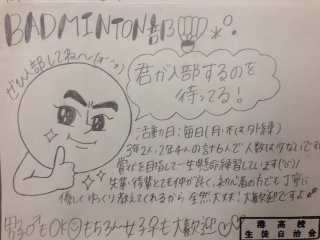 BADMINTON部
ぜひ入部してね～(^o^)
君が入部するのを
待ってる!
活動日:毎日(月・木は夕練)
3年2人・2年4人の計6人で人数は少ないですが
賞状を目指して一生懸命練習しています(^o^)
先輩・後輩とても仲が良く、初心者の方でも丁寧に
優しくゆっくり教えてくれるから全然大丈夫!大歓迎です☆
男子もOK もちろん女子も大歓迎♡
港高校
生徒自治会